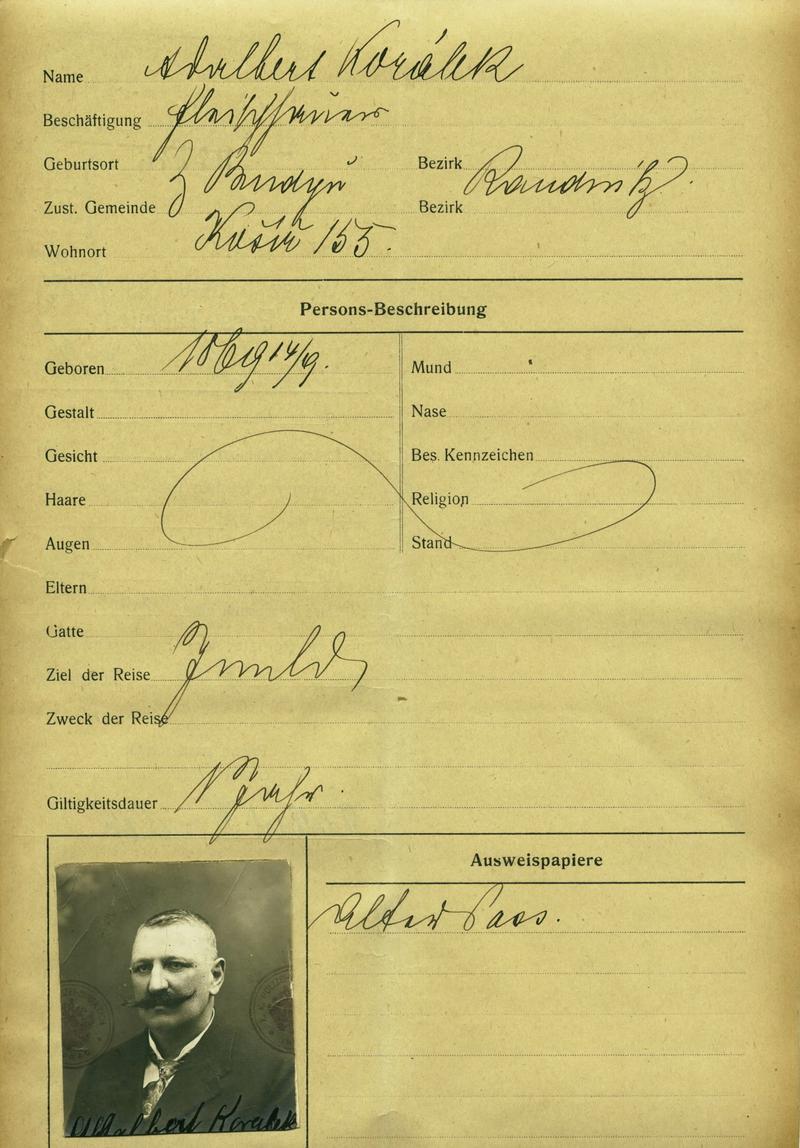 Name Adalbert Korálek
Beschäftigung Fleischhauer
Geburtsort
Bezirk
Zust. Gemeinde Budyň
Bezirk Raudnitz.
Wohnort Košíř 155.
Persons-Beschreibung
Geboren 1869 14/9.
Mund
Gestalt
Nase
Gesicht
Bes. Kennzeichen
Haare
Religion
Augen
Stand
Eltern
Gatte
Ziel der Reise Inland
Zweck der Reise
Giltigkeitsdauer 1 Jahr.
Ausweispapiere
Alter Pass.
Adalbert Koralek